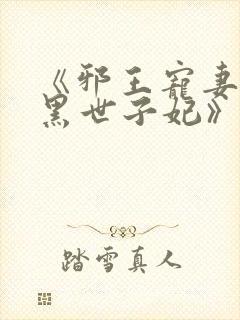 《邪王宠妻
黑世子妃》
踏雪真人